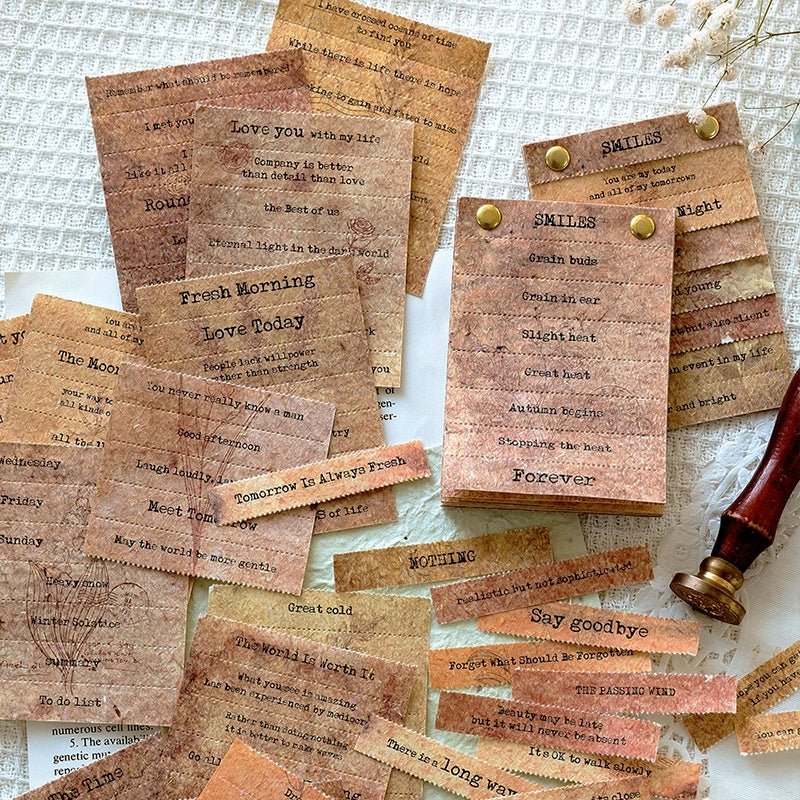 I have crossed oceans of time
to find you
While there is life there is hope
to gain and fated to miss
Remember what should be remembered
I met you
like it all
Love you with my life
Company is better
than detail than love
the Best of us
Eternal light in the dark world
you
SMILES
You are my today
and all of my tomorrows
Night
and young
but also client
an event in my life
and bright
SMILES
Grain buds
Grain in ear
Slight heat
Great heat
Autumn begins
Stopping the heat
Forever
Fresh Morning
Love Today
People lack willpower
rather than strength
of life
You are my
and all of my
The Moon
your way to
all kinds
all the
You never really know a man
Good afternoon
Laugh loudly,
Meet Tomorrow
May the world be more gentle
Tomorrow Is Always Fresh
Wednesday
Friday
Sunday
Heavy snow
Winter Solstice
summary
To do list
numerous cell lines.
5. The availability
genetic
NOTHING
Realistic but not sophisticated
Say goodbye
Forget What Should Be Forgotten
THE PASSING WIND
Beauty may be late
but it will never be absent
It's OK to walk slowly
There is a long way
close
Great cold
The World Is Worth It
What you see is amazing
has been experienced by mediocr
Rather than doing nothing
it is better to make waves
Go all
The Time
you can
if you have
You can